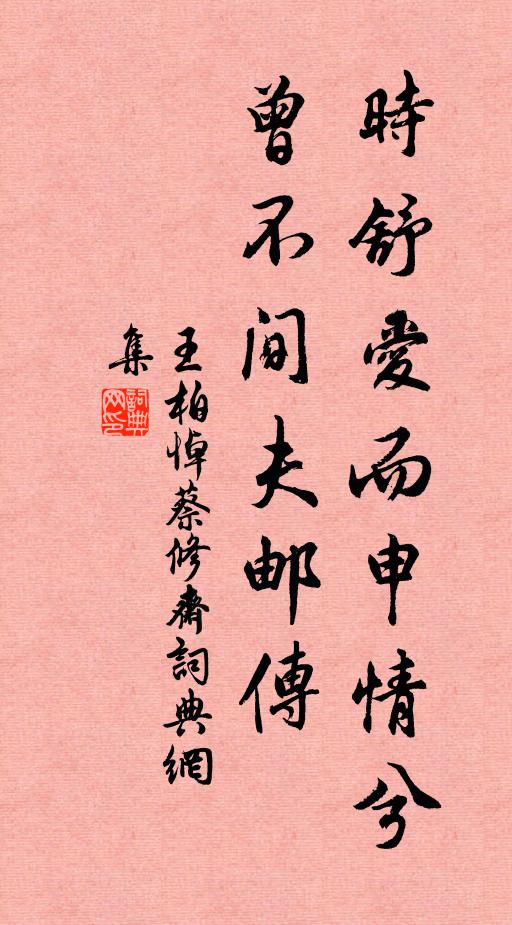 時舒愛而申情兮
曾不间夫邮傳
王柏悼蔡修齋詞典網
集
詞典
网印